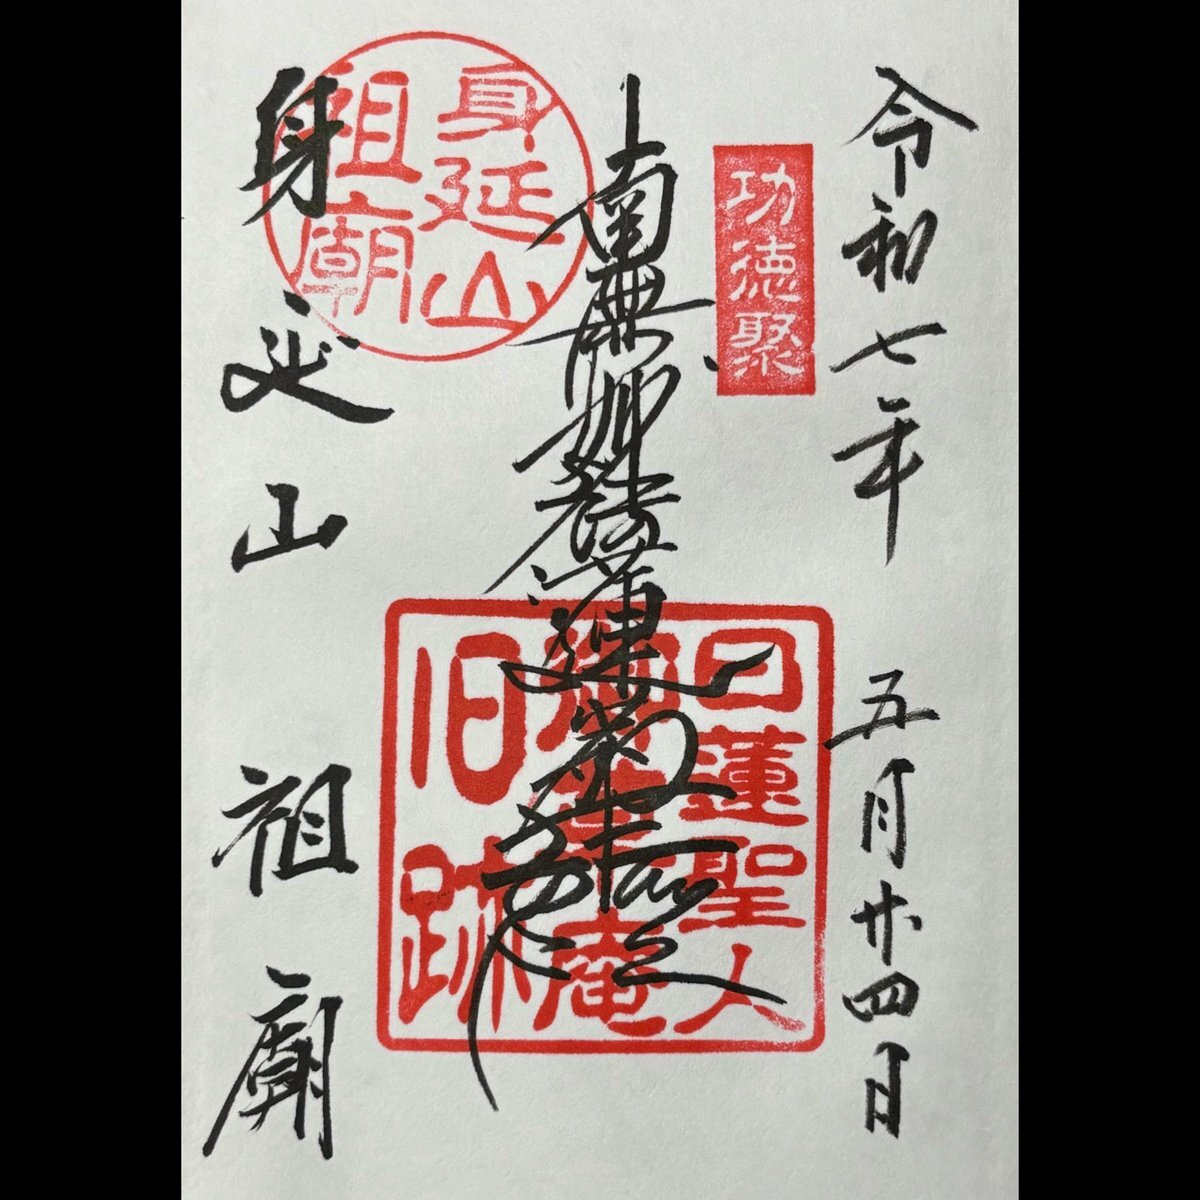 令和七年 五月廿四日
功徳聚
南無妙法蓮華經
日蓮聖人
御草庵
旧跡
身延山
祖廟
身延山 祖廟